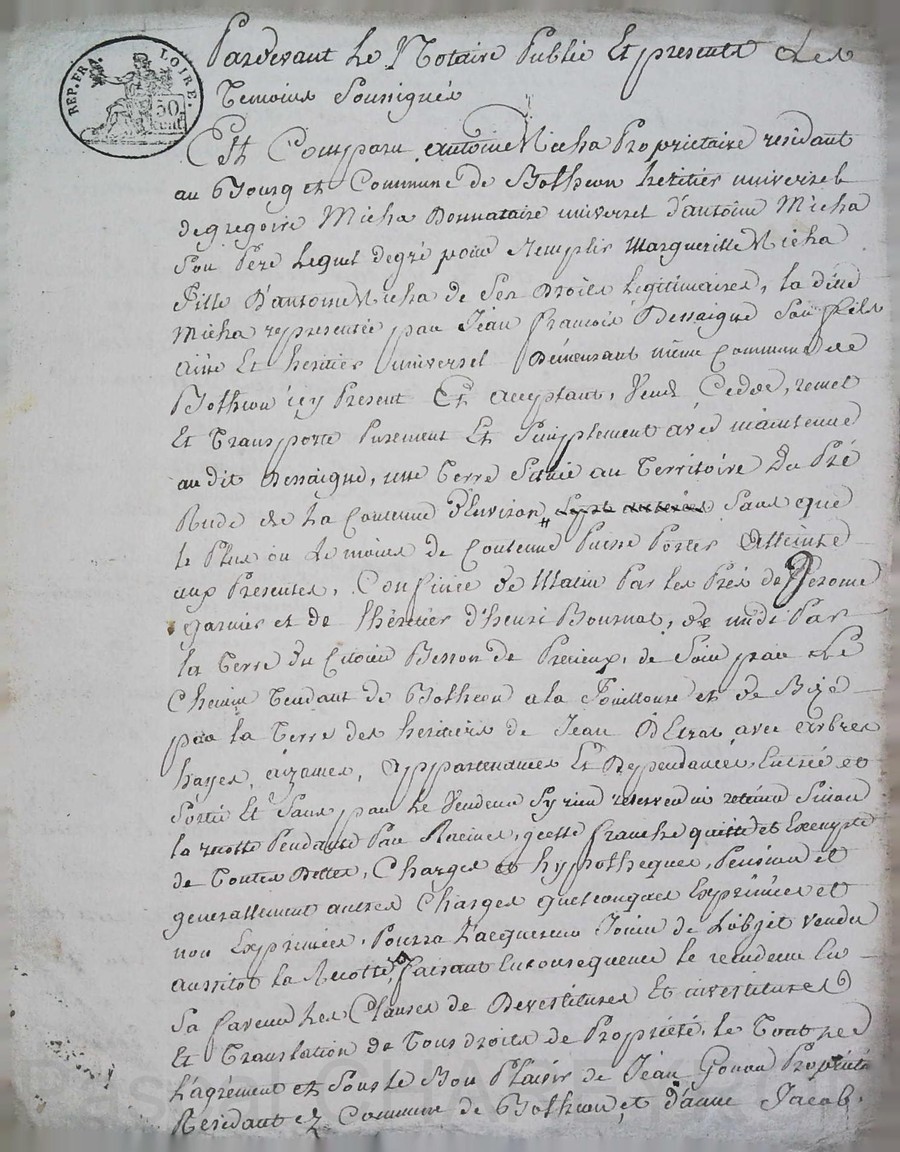 REP. FRA. LOIRE.
50 cent.
Pardevant Le Notaire Public Et presents Les
Temoins Soussignés
Est Comparu antoine Micha Propriétaire residant
au Bourg et Commune de Botheon heritier universel
de gregoire Micha Donnataire universel d'antoine Micha
Son Pere Lequel de gré pour Remplir Margueritte Micha
Fille D'antoine Micha de Ses Droits Legitimaires, la ditte
Micha representée par Jean François Dessaigne Son fils
ainé Et heritier universel Demeurant même Commune de
Botheon icy Present Et acceptant, Vend, Cedde, remet
Et Transporte Purement Et Simplement avec maintenue
au dit Dessaigne, une Terre Située au Territoire Du Pré
Rude de La Contenue D'Environ # Sans que
le Plus ou Le moins de Contenue Puisse Porter Atteinte
aux Presentes, Confinée de Matin Par les Prés de Jerome
garnier et de l'héritier d'henri Bournat, de midi Par
la Terre du Citoien Besson de Precieux, de Soir par Le
Chemin Tendant de Botheon a la Fouillouse et de Bize
par la Terre des heritiers de Jean avec Arbres
hayes, aizances, Appartenances Et Dependances, Entrée et
Sortie Et Sans par Le Vendeur S'y rien reserver ni retenir Sinon
la recolte Pendante Par Racines, icelle franche quitte et Exempte
de Toutes Dettes, Charges et hypotheques, Pension et
generallement autres Charges quelconques Exprimées et
non Exprimées. Pourra L'acquereur Jouir de L'objet vendu
aussitot la Recolte, faisant En consequence le vendeur En
Sa faveur Les Clauses de Devestitures Et investitures
Et Translation de Tous droits de Propriété, le Tout
L'agrement et Sous le Bon Plaisir de Jean Gonon Proprietre
Residant Commune de Botheon et d'anne Jacob.